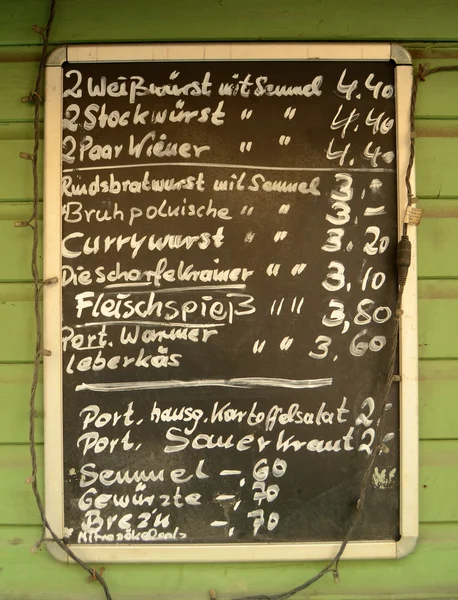 2 Weißwürst mit Semmel 4.40
2 Stockwürst " " 4.40
2 Paar Wiener " " 4.40
Rindsbratwurst mit Semmel 3,-
Bruhpolnische " " 3,-
Currywurst " " 3,20
Die scharfe Krainer " " 3,10
Fleischspieß " " 3,80
Port. Warmer
Leberkäs " " 3,60
Port. hausg. Kartoffelsalat 2,-
Port. Sauerkraut 2,-
Semmel -,60
Gewürzte -,70
Brez'n -,70